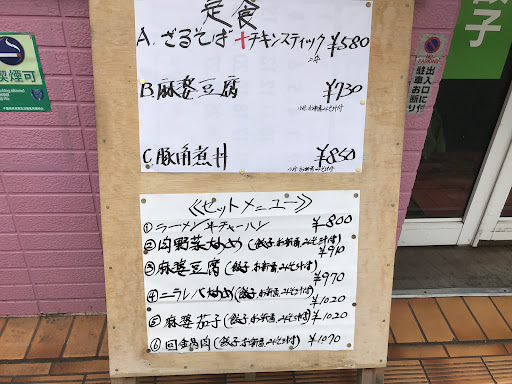 定食
A. ざるそば+チキンスティック ¥580
2本
B 麻婆豆腐 ¥730
C 豚角煮 ¥850
≪セットメニュー≫
① ラーメン 半チャーハン ¥800
② 肉野菜炒め(餃子.お新香.みそ汁付) ¥910
③ 麻婆豆腐(餃子.お新香.みそ汁付) ¥970
④ ニラレバ炒め(餃子.お新香.みそ汁付) ¥1020
⑤ 麻婆茄子(餃子.お新香.みそ汁付) ¥1020
⑥ 回鍋肉(餃子.お新香.みそ汁付) ¥1070
喫煙可
出入口に付
駐車お断り
餃子